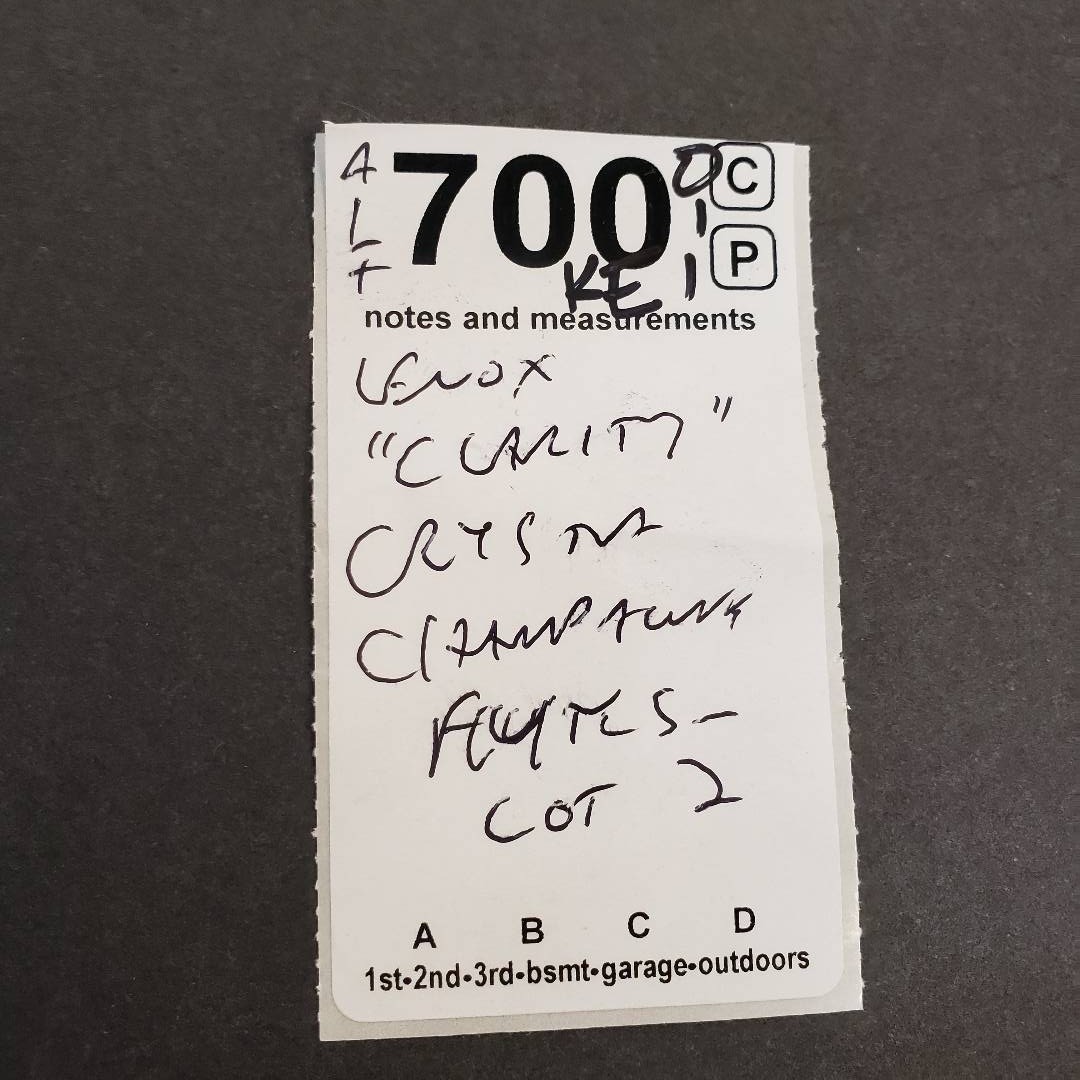 ALT 700 0 C
1
P
KE 1
notes and measurements
LENOX
"CLARITY"
CRYSTAL
CHAMPAGNE
FLUTES -
LOT 2
A B C D
1st•2nd•3rd•bsmt•garage•outdoors